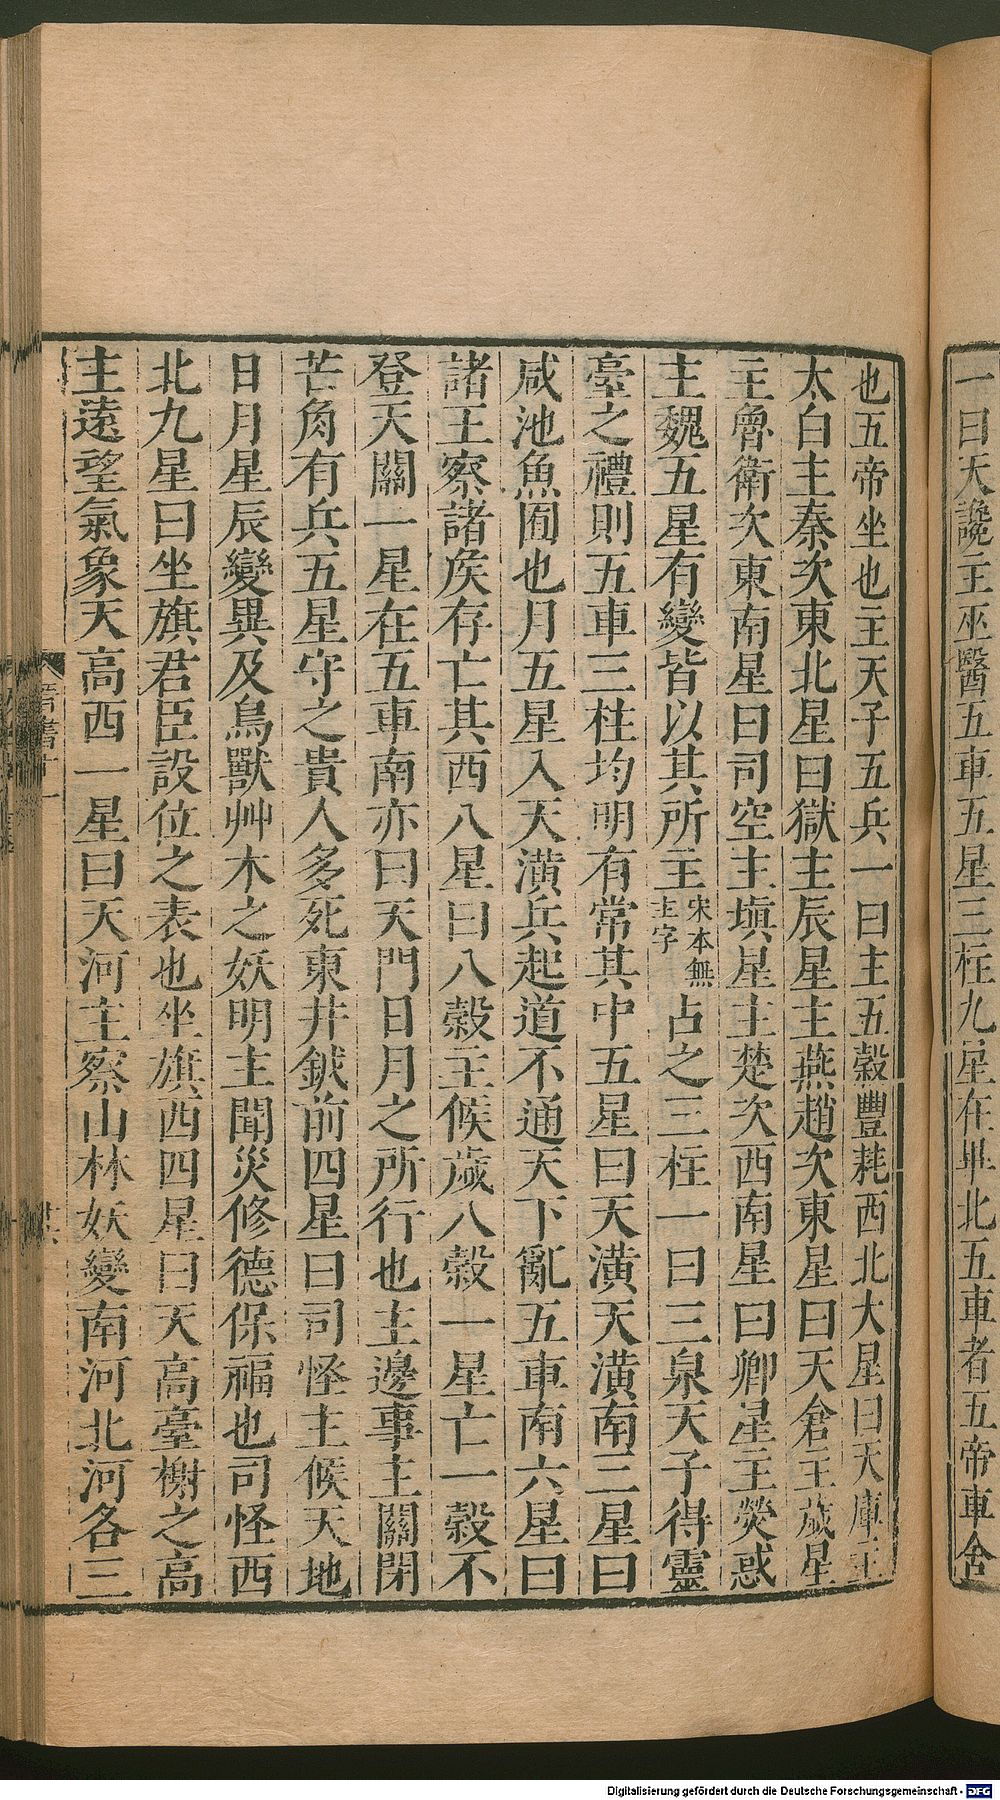 一曰天讒主巫醫五車五星三柱九星在畢北五車者五帝車舍
也五帝坐也主天子五兵一曰主五穀豐耗西北大星曰天庫主
太白主秦次東北星曰獄主辰星主燕趙次東星曰天倉主歲星
主魯衛次東南星曰司空主塡星主楚次西南星曰卿星主熒惑
主魏五星有變皆以其所主宋本無主字占之三柱一曰三泉天子得靈
臺之禮則五車三柱均明有常其中五星曰天潢天潢南三星曰
咸池魚囿也月五星入天潢兵起道不通天下亂五車南六星曰
諸王察諸矦存亡其西八星曰八穀主候歲八穀一星亡一穀不
登天關一星在五車南亦曰天門日月之所行也主邊事主關閉
芒角有兵五星守之貴人多死東井鉞前四星曰司怪主候天地
日月星辰變異及鳥獸艸木之妖明主聞災修德保福也司怪西
北九星曰坐旗君臣設位之表也坐旗西四星曰天高臺榭之高
主遠望氣象天高西一星曰天河主察山林妖變南河北河各三
晉書十一
Digitalisierung gefördert durch die Deutsche Forschungsgemeinschaft - DFG